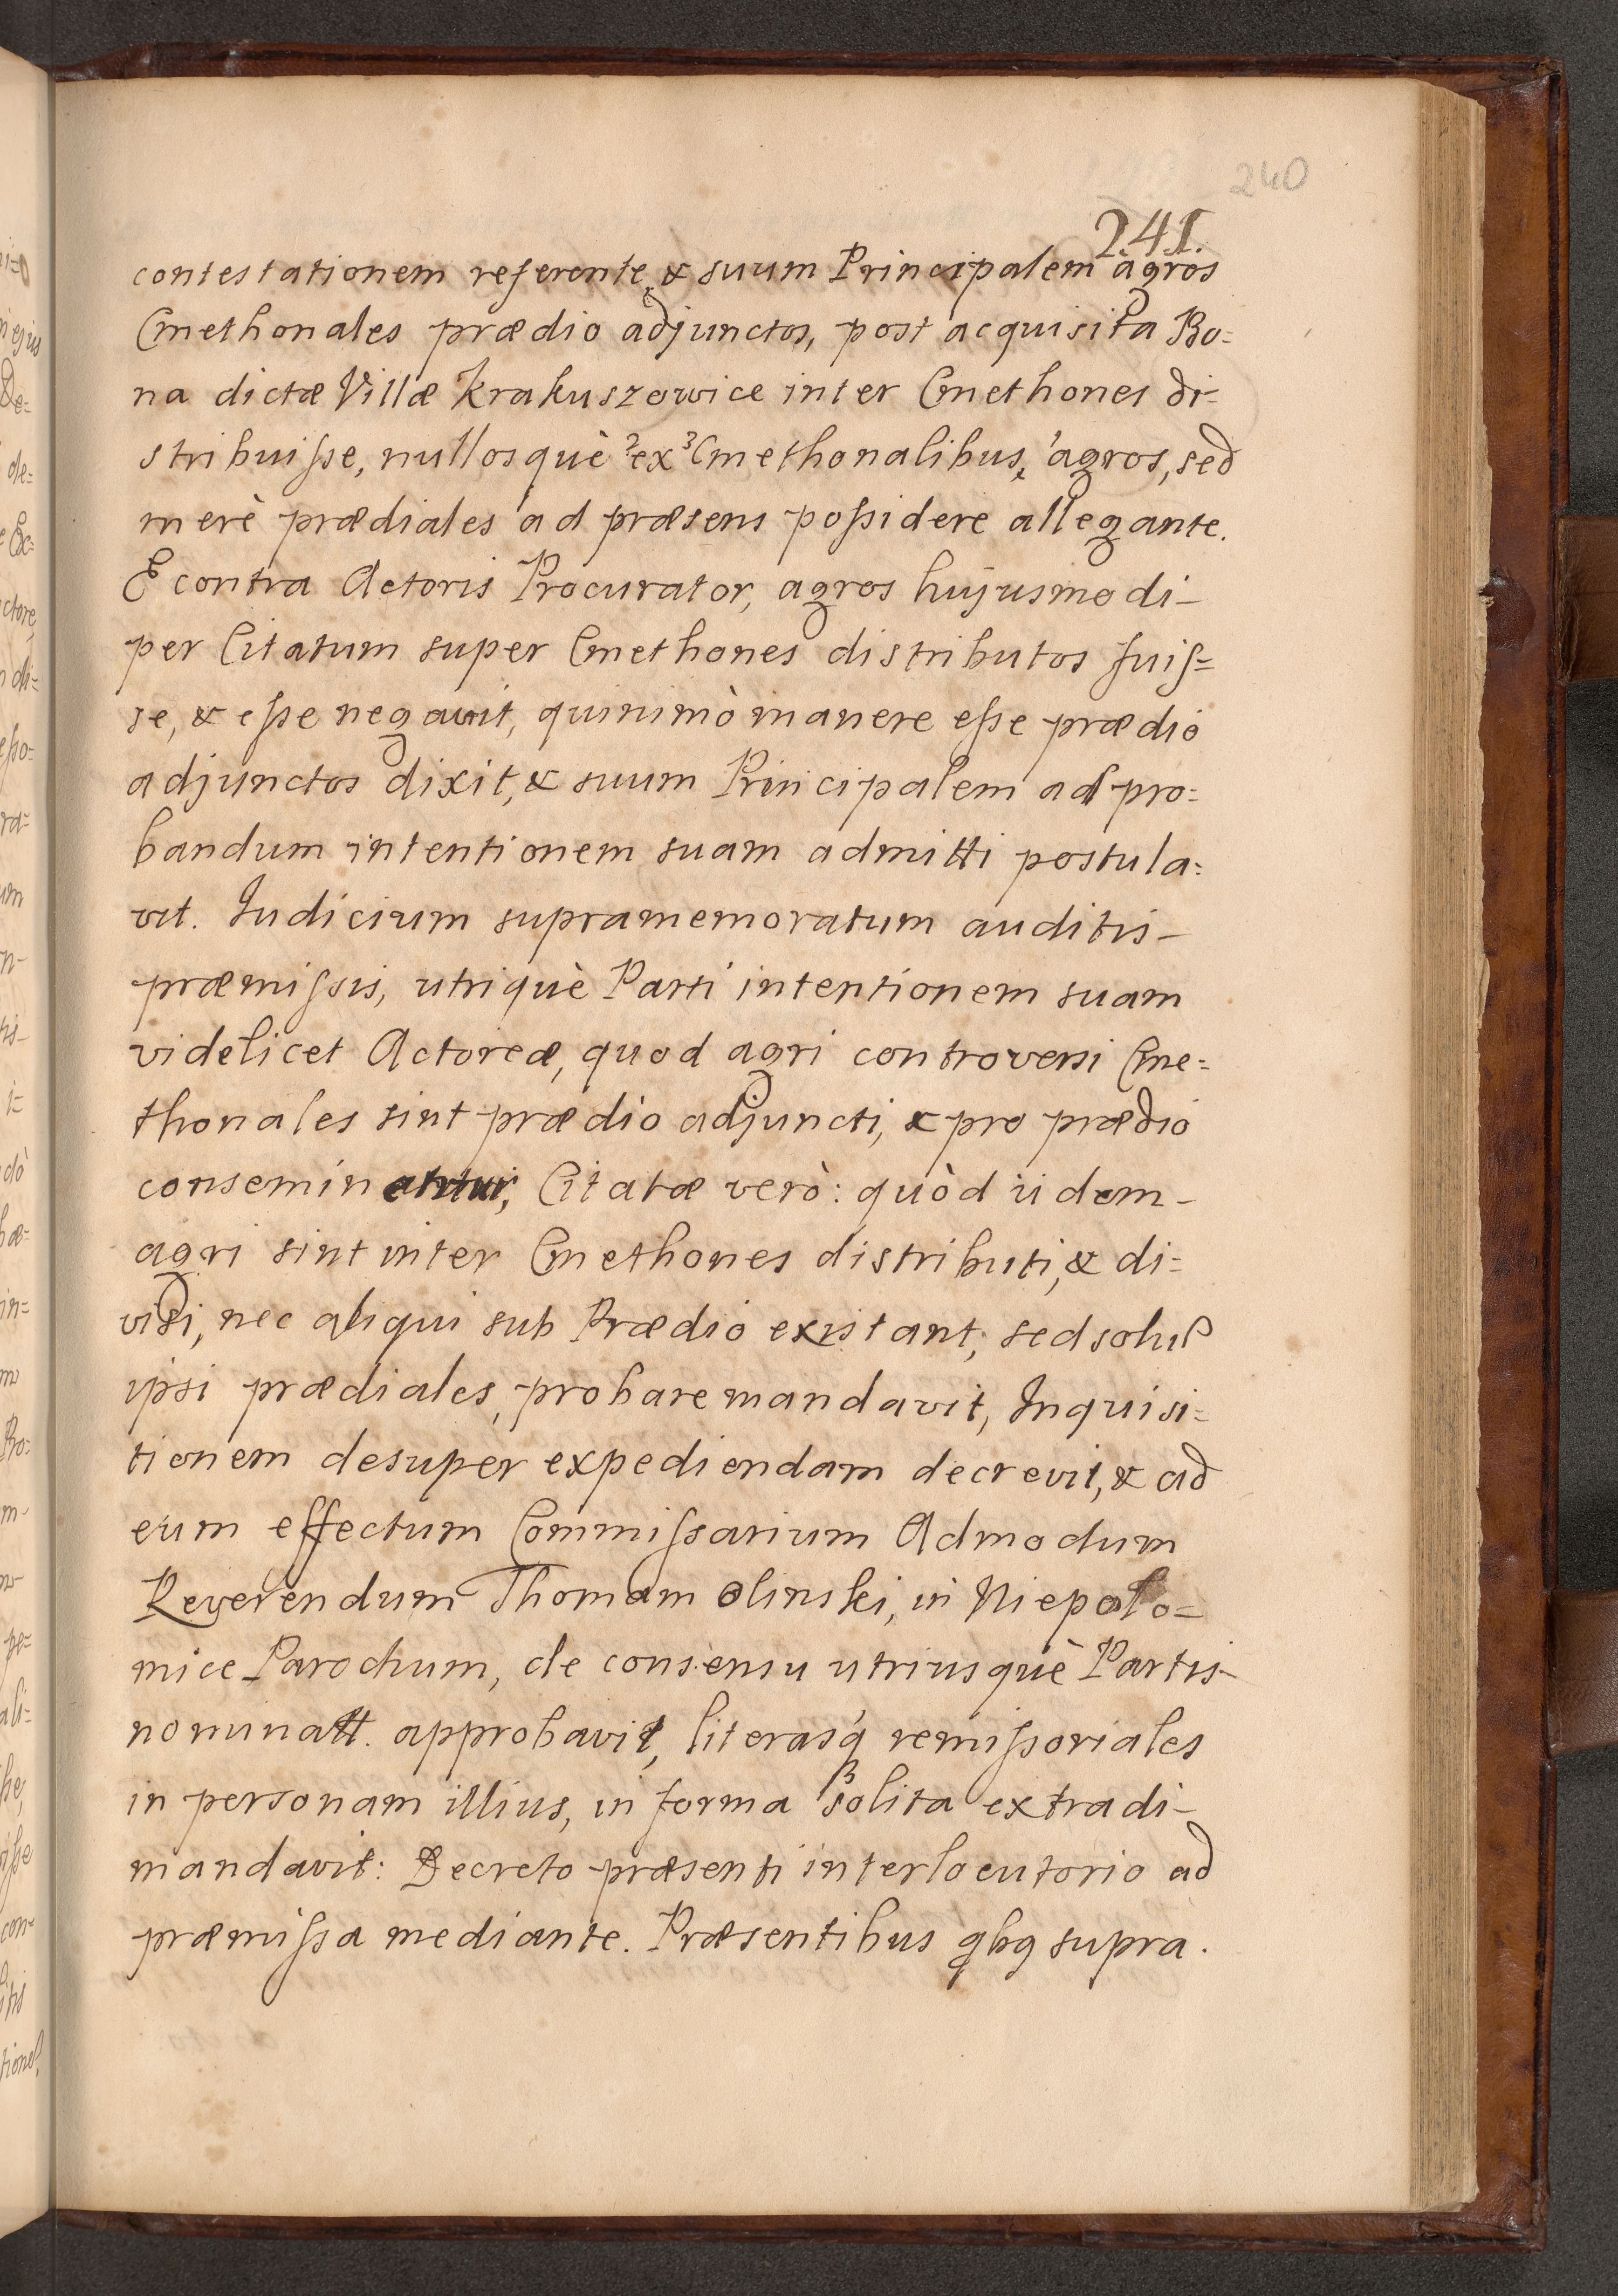 240
241.
contestationem referente, & suum Principalem agros
Cmethonales prædio adjunctos, post acquisita Bo=
na dictæ Villæ Krakuszowice inter Cmethones di=
stribuiſse, nullosquè ²ex ³Cmethonalibus, ¹agros, sed
merè prædiales ad præsens poſsidere allegante.
E contra Actoris Procurator, agros hujusmodi-
per Citatum super Cmethones distributos fuiſ=
se, & eſse negavit, quinimò manere eſse prædio
adjunctos dixit, & suum Principalem ad pro=
bandum intentionem suam admitti postula=
vit. Judicium supramemoratum auditis-
præmiſsis, utriquè Parti intentionem suam
videlicet Actoreæ, quod agri controversi Cme=
thonales sint prædio adjuncti, & pro prædio
conseminantur, Citatæ verò: quòd iidem-
agri sint inter Cmethones distributi, & di=
visi, nec aliqui sub Prædio existant, sed soli
ipsi prædiales, probare mandavit, Inquisi=
tionem desuper expediendam decrevit, & ad
eum effectum Commiſsarium Admodum
Reverendum Thomam Olinski, in Niepolo=
mice Parochum, de consensu utriusquè Partis-
nominatt. approbavit, literasq́ remiſsoriales
in personam illius, in forma solita extradi-
mandavit: Decreto præsenti interlocutorio ad
præmiſsa mediante. Præsentibus qbg supra.